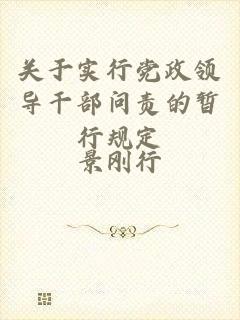 关于实行党政领
导干部问责的暂
行规定
景刚行